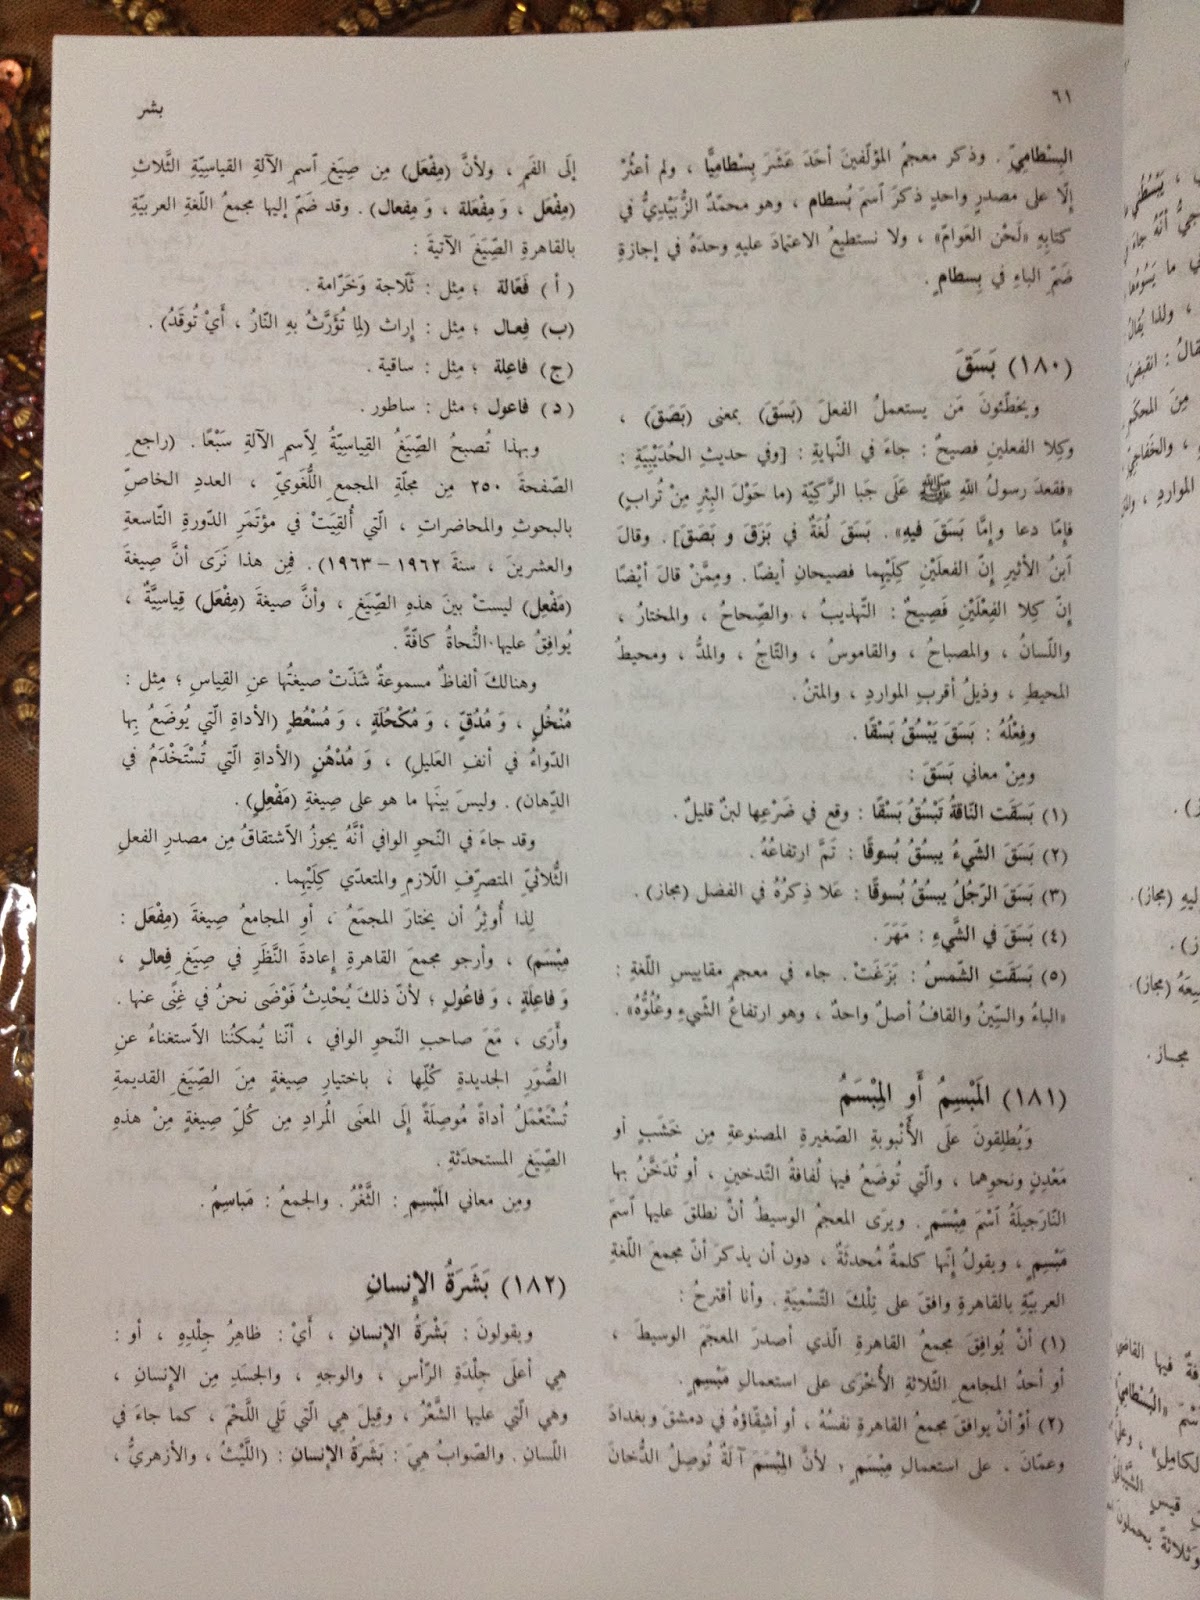 ٦١
بشر
البِسْطامِيّ . وذكر معجمُ المؤلّفينَ أحَدَ عَشَرَ بِسْطاميًّا ، ولم أعثُرْ
إلّا على مصدرٍ واحدٍ ذكرَ ٱسمَ بُسطام ، وهو محمّدٌ الزُّبَيْدِيُّ في
كتابِهِ «لَحْن العَوامّ» ، ولا نستطيعُ الاعتمادَ عليهِ وحدَهُ في إجازةِ
ضَمّ الباءِ في بِسطامٍ .
(١٨٠) بَسَقَ
ويخطّئونَ مَن يستعملُ الفعلَ (بَسَقَ) بمعنى (بَصَقَ) ،
وكِلا الفعلينِ فصيحٌ : جاءَ في النّهايةِ : [وفي حديثِ الحُدَيْبِيَةِ :
«فقعدَ رسولُ اللهِ ﷺ عَلَى جَبا الرَّكِيّةِ (ما حَوْلَ البِئرِ مِنْ تُرابٍ)
فإمّا دعا وإمّا بَسَقَ فيهِ» . بَسَقَ لُغَةٌ في بَزَقَ و بَصَقَ] . وقالَ
ٱبنُ الأثيرِ إنّ الفعلَيْنِ كِلَيْهِما فصيحانِ أيضًا . ومِمَّنْ قالَ أيْضًا
إنّ كِلا الفِعْلَيْنِ فَصِيحٌ : التّهذيبُ ، والصِّحاحُ ، والمختارُ ،
واللّسانُ ، والمصباحُ ، والقاموسُ ، والتّاجُ ، والمدُّ ، ومحيطُ
المحيطِ ، وذيلُ أقربِ المواردِ ، والمتنُ .
وفِعْلُهُ : بَسَقَ يَبْسُقُ بَسْقًا .
ومِنْ معاني بَسَقَ :
(١) بَسَقَت النّاقةُ تَبْسُقُ بَسْقًا : وقع في ضَرْعِها لبنٌ قليلٌ .
(٢) بَسَقَ الشّيءُ يبسُقُ بُسوقًا : تَمَّ ارتفاعُهُ .
(٣) بَسَقَ الرّجُلُ يبسُقُ بُسوقًا : عَلا ذِكرُهُ في الفضل (مجاز) .
(٤) بَسَقَ في الشَّيءِ : مَهَرَ .
(٥) بَسَقَتِ الشّمسُ : بَزَغَتْ . جاء في معجمِ مقاييسِ اللّغةِ :
«الباءُ والسِّينُ والقافُ أصلٌ واحدٌ ، وهو ارتفاعُ الشّيءِ وعُلُوُّهُ» .
(١٨١) المَبْسِمُ أَوِ المِبْسَمُ
وَيُطلِقونَ علَى الأُنْبوبةِ الصّغيرةِ المصنوعةِ مِن خَشَبٍ أو
مَعْدِنٍ ونحوِهما ، والّتي تُوضَعُ فيها لُفافةُ التّدخينِ ، أو تُدَخَّنُ بها
النّارَجيلَةُ ٱسْمَ مِبْسَمٍ . ويرَى المعجمُ الوسيطُ أنْ نطلقَ عليها ٱسمَ
مَبْسِمٍ ، ويقولُ إنّها كلمةٌ مُحدثَةٌ ، دون أن يذكرَ أنّ مجمعَ اللّغةِ
العربيّةِ بالقاهرةِ وافقَ على تِلْكَ التّسْمِيَةِ . وأنا أقترحُ :
(١) أنْ يُوافِقَ مجمعُ القاهرةِ الّذي أصدرَ المعجَمَ الوسيطَ ،
أو أحدُ المجامعِ الثّلاثةِ الأُخْرَى على استعمالِ مَبْسِمٍ .
(٢) أوْ أنْ يوافقَ مجمعُ القاهرةِ نفسُهُ ، أو أشِقّاؤهُ في دمشقَ وبغدادَ
وعمّانَ ، على استعمالِ مِبْسَمٍ ؛ لأنّ المِبْسَمَ آلةٌ تُوصِلُ الدُّخانَ
إلَى الفَمِ ، ولأنَّ (مِفْعَل) مِن صِيَغِ ٱسمِ الآلةِ القياسِيّةِ الثَّلاثِ
(مِفْعَل ، وَ مِفْعَلة ، وَ مِفعال) . وقد ضَمّ إليها مجمعُ اللّغةِ العربيّةِ
بالقاهرةِ الصِّيَغَ الآتيةَ :
(أ) فَعّالة ؛ مِثل : ثَلّاجة وَخَرّامة .
(ب) فِعال ؛ مِثل : إراث (لِما تُؤَرَّثُ بهِ النّارُ ، أيْ تُوقَدُ) .
(ج) فاعِلة ؛ مِثل : ساقية .
(د) فاعول ؛ مثل : ساطور .
وبهذا تُصبحُ الصِّيَغُ القِياسِيّةُ لِٱسمِ الآلةِ سَبْعًا . (راجعِ
الصّفحةَ ٢٥٠ مِن مجلّةِ المجمعِ اللُّغَويّ ، العددِ الخاصِّ
بالبحوثِ والمحاضراتِ ، الّتي أُلقِيَتْ في مؤتَمَرِ الدّورةِ التّاسعةِ
والعشرينَ ، سنةَ ١٩٦٢ – ١٩٦٣) . فمِن هذا نَرَى أنَّ صِيغةَ
(مَفْعِل) ليستْ بينَ هذهِ الصِّيَغِ ، وأنَّ صيغةَ (مِفْعَل) قِياسِيَّةٌ ،
يُوافِقُ عليها النُّحاةُ كافّةً .
وهنالكَ ألفاظٌ مسموعةٌ شَذّتْ صيغتُها عنِ القِياسِ ؛ مِثل :
مُنْخُلٍ ، وَ مُدُقٍّ ، وَ مُكْحُلَةٍ ، وَ مُسْعُطٍ (الأداةِ الّتي يُوضَعُ بِها
الدّواءُ في أنفِ العَليلِ) ، وَ مُدْهُنٍ (الأداةِ الّتي تُسْتَخْدَمُ في
الدِّهان) . وليسَ بينَها ما هو على صِيغةِ (مَفْعِلٍ) .
وقد جاءَ في النّحوِ الوافي أنَّهُ يجوزُ الٱشتقاقُ مِن مصدرِ الفعلِ
الثُّلاثيِّ المتصرِّفِ اللّازمِ والمتعدّي كِلَيْهِما .
لِذا أُوثِرُ أن يختارَ المجمَعُ ، أوِ المجامعُ صِيغةَ (مِفْعَل :
مِبْسَم) ، وأرجو مجمعَ القاهرةِ إعادةَ النَّظَرِ في صِيَغِ فِعالٍ ،
وَ فاعِلَةٍ ، وَ فاعُولٍ ؛ لأنّ ذلكَ يُحْدِثُ فَوْضَى نحنُ في غِنًى عنها .
وأرَى ، مَعَ صاحبِ النّحوِ الوافي ، أنّنا يُمكنُنا الٱستغناءُ عنِ
الصُّوَرِ الجديدةِ كُلِّها ، باختيارِ صِيغةٍ مِنَ الصِّيَغِ القديمةِ
تُسْتَعْمَلُ أداةً مُوصِلَةً إلَى المعنَى المُرادِ مِن كُلِّ صيغةٍ مِنْ هذهِ
الصِّيَغِ المستحدَثةِ .
ومِن معاني المَبْسِمِ : الثَّغْرُ . والجمعُ : مَباسِمُ .
(١٨٢) بَشَرَةُ الإنسانِ
ويقولونَ : بَشْرَةُ الإنسانِ ، أيْ : ظاهِرُ جِلْدِهِ ، أو :
هِي أعلَى جِلْدَةِ الرّأسِ ، والوجهِ ، والجسَدِ مِن الإنسانِ ،
وهي الّتي عليها الشَّعْرُ ، وقِيلَ هِي الّتي تَلِي اللَّحْمَ ، كما جاءَ في
اللّسانِ . والصّوابُ هِيَ : بَشَرَةُ الإنسانِ : (اللَّيْثُ ، والأزهريُّ ،